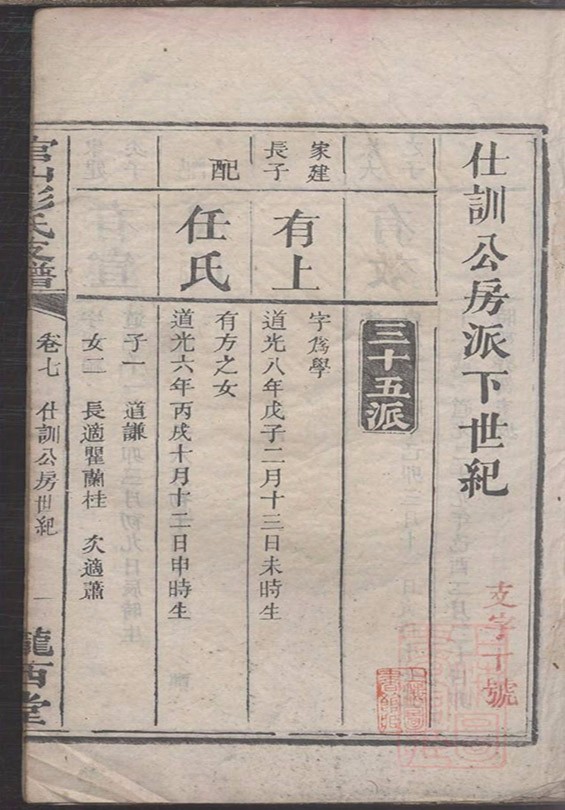 仕訓公房派下世紀
支字十號
三十五派
家建
長子
有上
字爲學
道光八年戊子二月十三日未時生
配
任氏
有方之女
道光六年丙戌十月十二日申時生
子一 道謙
女二 長適瞿蘭桂 次適蕭
官山彭氏支譜
卷七 仕訓公房世紀 一
隴西堂